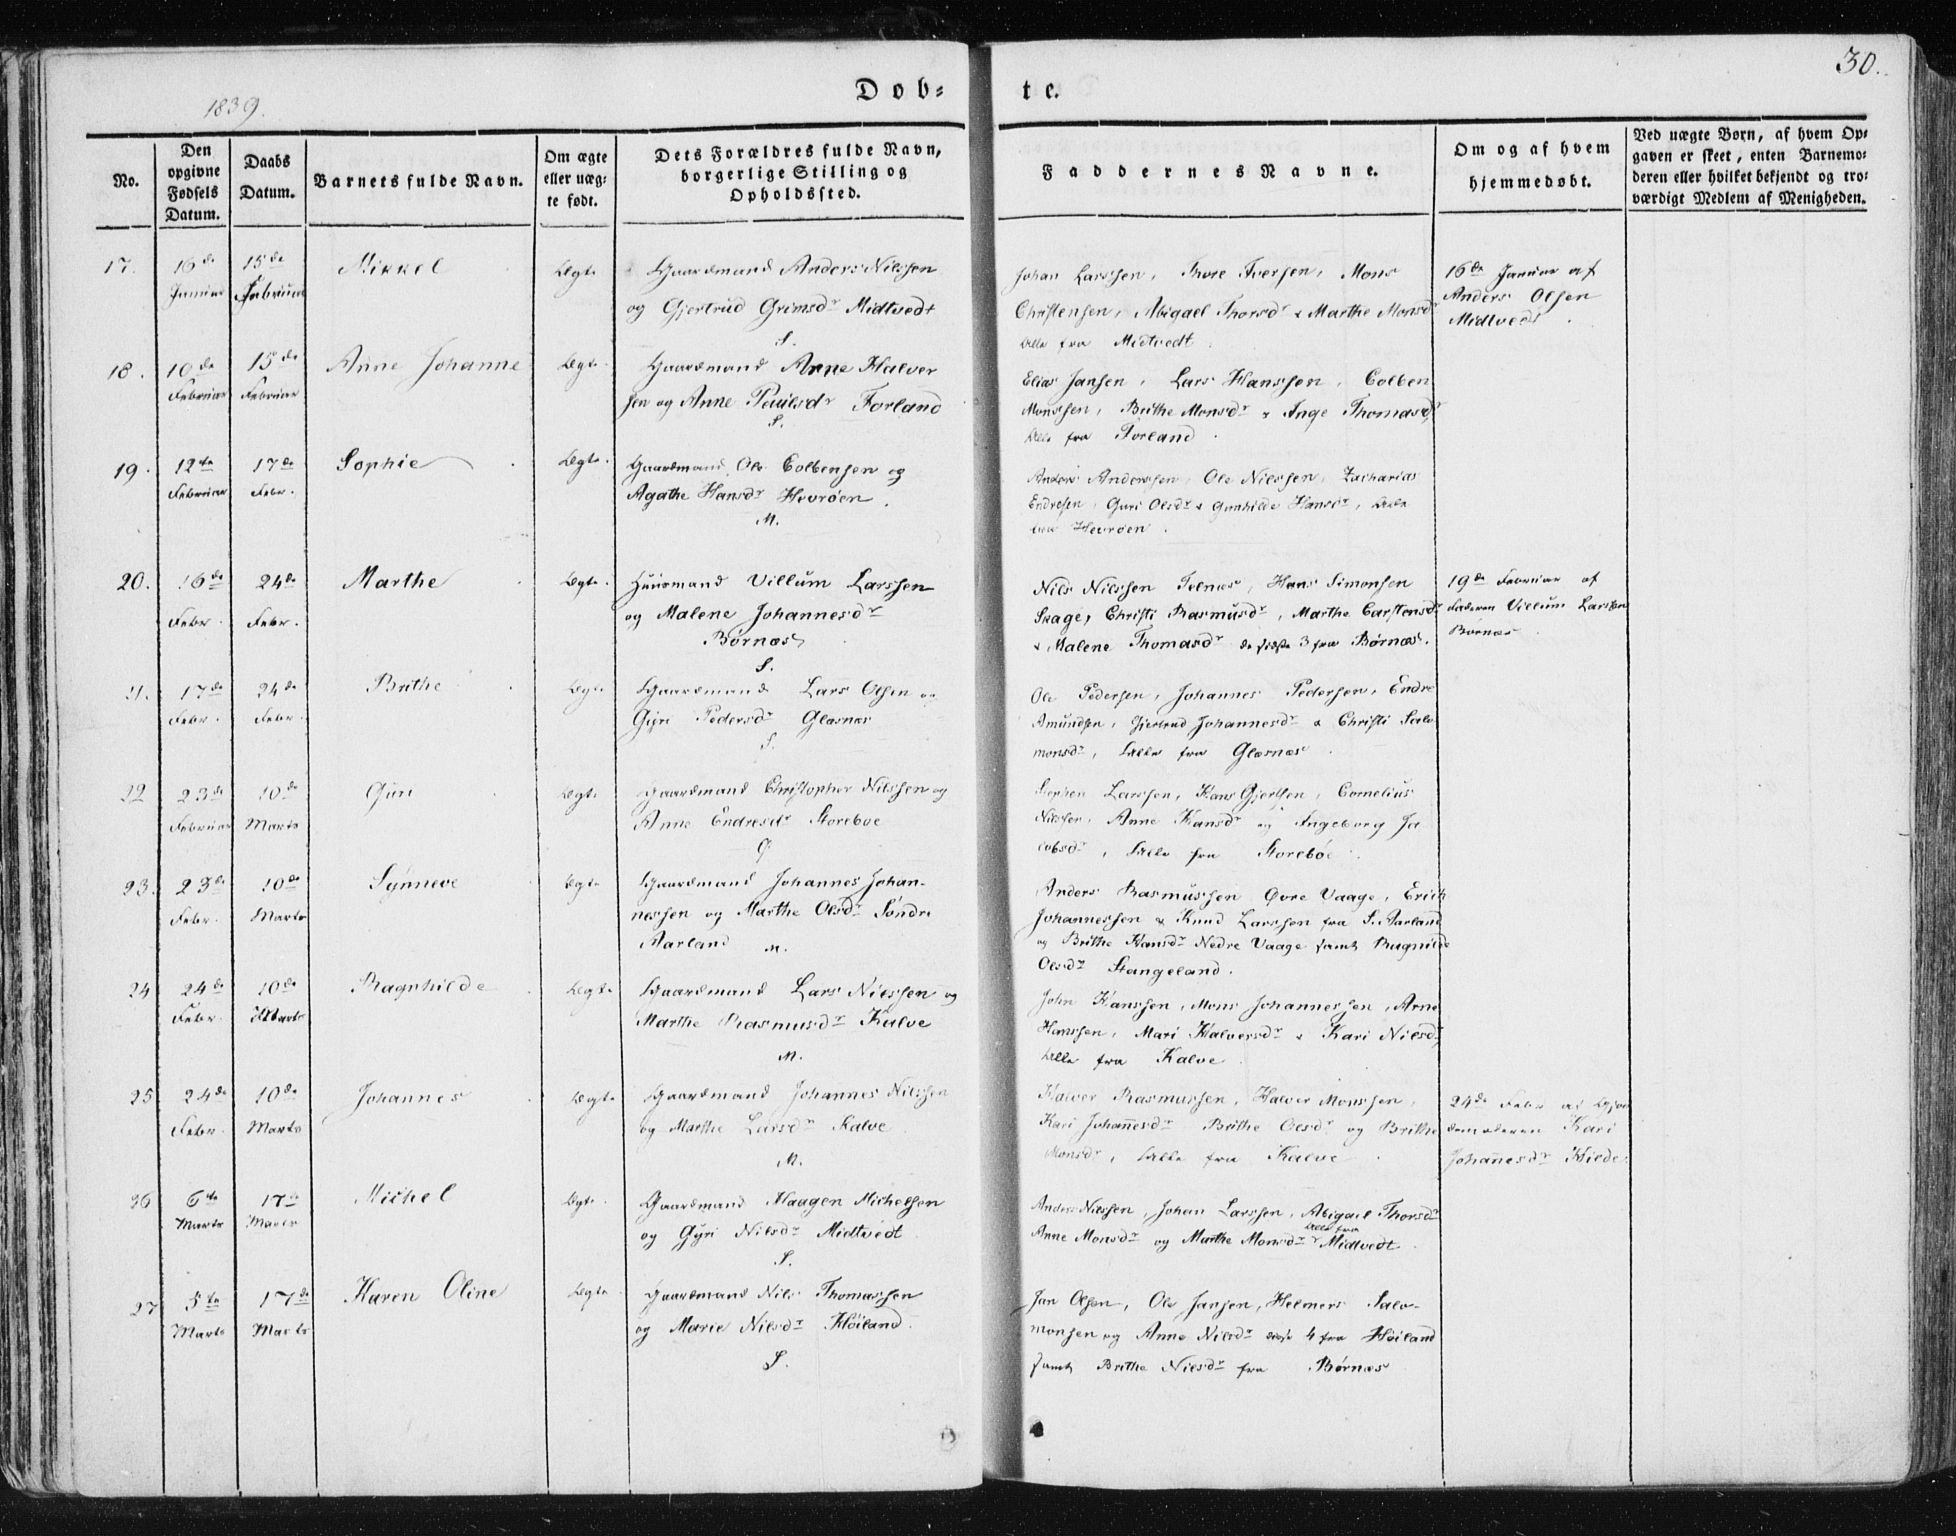 1839.
Døb-
te.
30.
No.
Den opgivne Fødsels Datum.
Daabs Datum.
Barnets fulde Navn.
Om ægte eller uæg-te født.
Dets Forældres fulde Navn, borgerlige Stilling og Opholdssted.
Faddernes Navne.
Om og af hvem hjemmedøbt.
Ved uægte Børn, af hvem Op-gaven er skeet, enten Barnemo-deren eller hvilket bekjendt og tro-værdigt Medlem af Menigheden.
17.
16de Januar
15de Februar
Mikkel
Ægte
Gaardmand Anders Nilssen
og Gjertrud Grimsdr Midtvedt
S.
Johan Larssen, Thore Iversen, Mons
Christensen, Abigael Thorsdr & Marthe Monsdr
Alle fra Midtvedt.
16de Januar af
Anders Olsen
Midtvedt.
18.
10de Februar
15de Februar
Anne Johanne
Ægte.
Gaardmand Arne Halver
sen og Anne Paulsdr Forland
S.
Elias Jansen, Lars Hanssen, Colben
Monssen, Brithe Monsdr & Inge Thomasdr,
Alle fra Forland.
19.
12te Februar
17de Febr.
Sophie
Ægte.
Gaardmand Ole Colbensen og
Agathe Hansdr Hevrøen.
M.
Anders Anderssen, Ole Nilssen, Zacharias
Endresen, Guri Olsdr & Gunhilde Hansdr, Alle
fra Hevrøen.
20.
16de Febr.
24de Febr.
Marthe
Ægte.
Huusmand Villum Larssen
og Malene Johannesdr
Børnæs
S.
Nils Nilssen Telnæs, Hans Simonsen
Skage, Christi Rasmusdr, Marthe Carstensdr
& Malene Thomasdr de sidste 3 fra Børnæs.
19de Februar af
Faderen Villum Larssen
Børnæs.
21.
17de Febr.
24de Febr.
Brithe
Ægte
Gaardmand Lars Olsen og
Gyri Pedersdr Glæsnæs
S.
Ole Pedersen, Johannes Pedersen, Endre
Amundsen, Gjertrud Johannesdr & Christi Salo
monsdr, Alle fra Glæsnæs.
22
23de Februar
10de Marts
Guri
Ægte
Gaardmand Christopher Nilssen og
Anne Endresdr Storebøe
G
Larssen, Hans Gjertsen, Cornelius
Nilssen, Anne Hansdr og Ingeborg Ja
cobsdr, Alle fra Storebøe.
23.
23de Febr.
10de Marts
Synneve
Ægte
Gaardmand Johannes Johan-
nessen og Marthe Olsdr Søndre
Aarland M.
Anders Rasmussen Øvre Vaage, Erich
Johannessen & Knud Larssen fra S. Aarland
og Brithe Hansdr Nedre Vaage samt Ragnilde
Olsdr Stangeland.
24
24de Febr.
10de Marts
Ragnhilde
Ægte
Gaardmand Lars Nilssen og
Marthe Rasmusdr Kalve
M.
John Hanssen, Mons Johannessen, Arne
Hanssen, Mari Halversdr & Kari Nilsdr,
Alle fra Kalve.
25
24de Febr.
10de Marts
Johannes
Ægte
Gaardmand Johannes Nilssen
og Marthe Larsdr Kalve
M.
Halver Rasmussen, Halver Monssen,
Kari Johañesdr Brithe Olsdr og Brithe
Monsdr, Alle fra Kalve.
24de Febr af Gjor
demoderen Kari
Johañesdr Hilde.
26
6te Marts
17de Marts
Michel
Ægte.
Gaardmand Haagen Michelsen
og Gyri Nilsdr Midtvedt.
S.
Anders Nilssen, Johan Larssen, Abigael Thorsdr
Anne Monsdr og Marthe Monsdr Alle fra Midtvedt.
27
5te Marts
17de Marts
Karen Oline
Ægte.
Gaardmand Nils Thomassen
og Marie Nilsdr Høiland.
S.
Jan Olsen, Ole Jansen, Helmers Salo-
monsen og Anne Nilsdr disse 4 fra Høiland
samt Brithe Nilsdr fra Børnæs